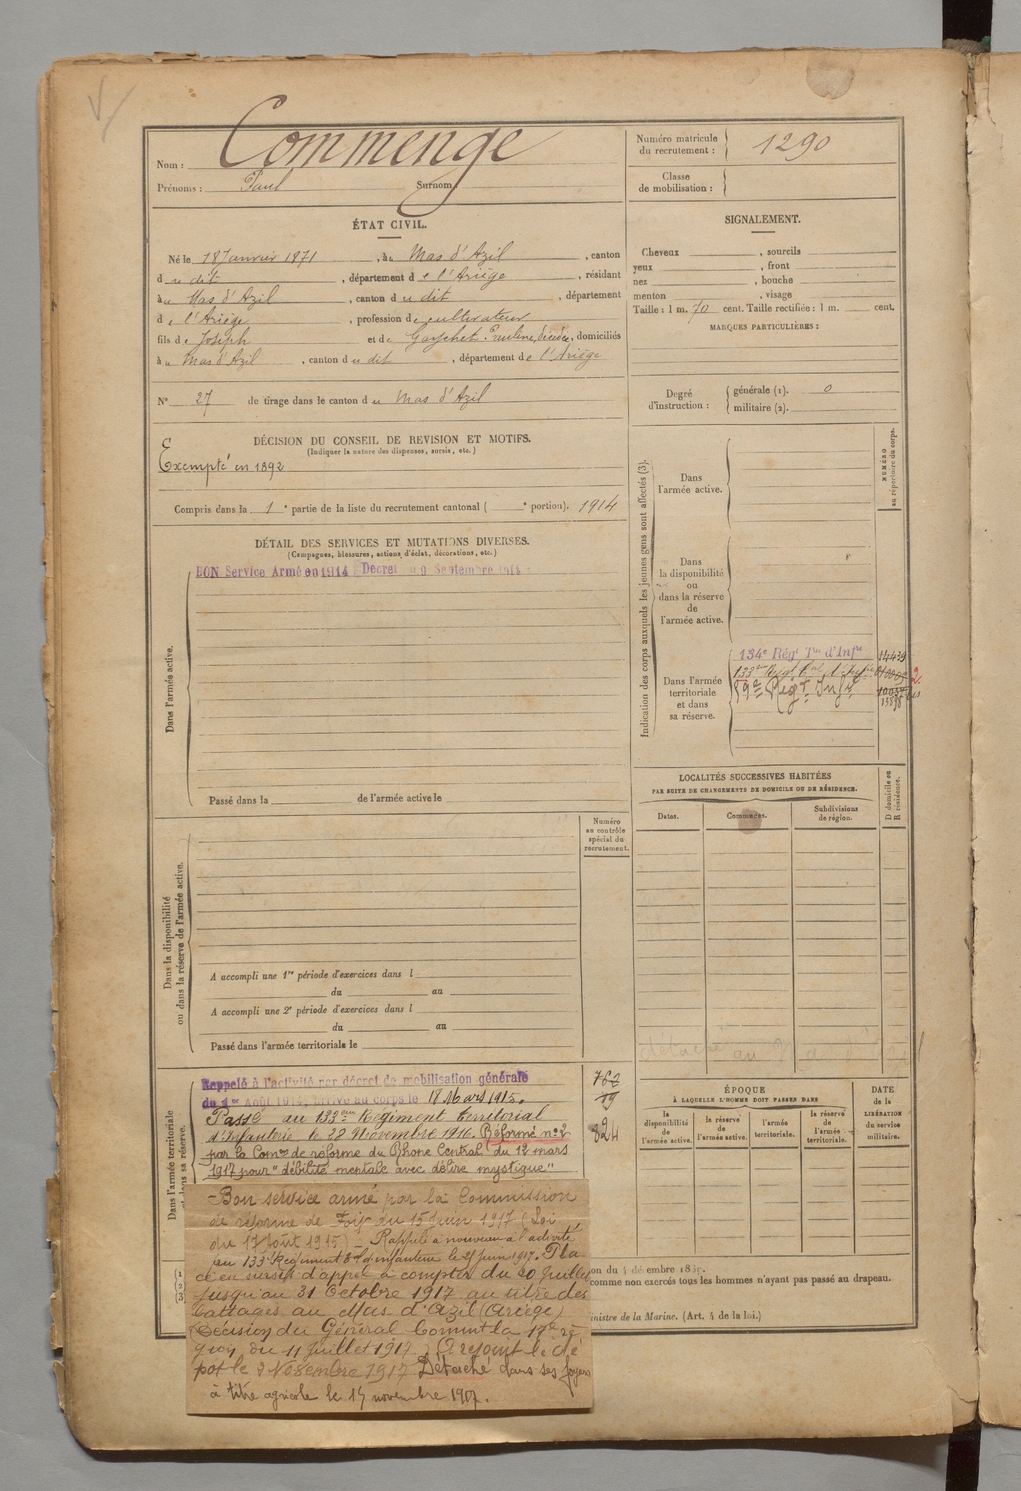 Nom : Commenge
Prénoms : Paul Surnom :
Numéro matricule du recrutement : 1290
Classe de mobilisation :
ÉTAT CIVIL.
Né le 18 Janvier 1871, à u Mas d'Azil, canton
d u dit, département d e l'Ariège, résidant
à u Mas d'Azil, canton d u dit, département
d e l'Ariège, profession de cultivateur
fils de Joseph et de Gaychet Pauline, décédée, domiciliés
à u Mas d'Azil, canton d u dit, département de l'Ariège
N° 27 de tirage dans le canton d u Mas d'Azil
SIGNALEMENT.
Cheveux , sourcils
yeux , front
nez , bouche
menton , visage
Taille : 1 m. 70 cent. Taille rectifiée : 1 m. cent.
MARQUES PARTICULIÈRES :
Degré d'instruction : générale (1). 0
militaire (2).
DÉCISION DU CONSEIL DE REVISION ET MOTIFS.
(Indiquer la nature des dispenses, sursis, etc.)
Exempté en 1892
Compris dans la 1e partie de la liste du recrutement cantonal ( e portion). 1914
DÉTAIL DES SERVICES ET MUTATIONS DIVERSES.
(Campagnes, blessures, actions d'éclat, décorations, etc.)
BON Service Armé en 1914 Decret du 9 Septembre 1914
Dans l'armée active.
Passé dans la de l'armée active le
Indication des corps auxquels les jeunes gens sont affectés (3).
NUMÉRO au répertoire du corps.
Dans l'armée active.
Dans la disponibilité ou dans la réserve de l'armée active.
Dans l'armée territoriale et dans sa réserve.
134e Régt Tal d'Infie 14439
133eme Regt Tal d'Infie
59e Régt. Infie
LOCALITÉS SUCCESSIVES HABITÉES
PAR SUITE DE CHANGEMENTS DE DOMICILE OU DE RÉSIDENCE.
Dates. Communes. Subdivisions de région. D domicile ou R résidence.
Dans la disponibilité ou dans la réserve de l'armée active.
Numéro au contrôle spécial du recrutement.
A accompli une 1re période d'exercices dans l
du au
A accompli une 2e période d'exercices dans l
du au
Passé dans l'armée territoriale le
détaché au
Dans l'armée territoriale et dans sa réserve.
Rappelé à l'activité par décret de mobilisation générale
du 1er Août 1914, arrivé au corps le 18 Mars 1915.
Passé au 133eme Régiment territorial
d'Infanterie le 28 Novembre 1916. Réformé n° 2
par la Comon de réforme du Rhone Central du 12 mars
1917 pour "débilité mentale avec délire mystique"
762
19
824
- Bon service armé par la Commission
de réforme de Foix du 15 juin 1917 (Loi
du 17 Août 1915) - Rappelé a nouveau à l'activité
au 133e Régiment Tal d'infanterie le 21 juin 1917. Pla
cé en sursis d'appel à compter du 20 Juillet
jusqu'au 31 Octobre 1917 au titre des
battages au Mas d'Azil (Ariège)
(Décision du Général Commt la 17e ré
gion du 11 Juillet 1917) A rejoint le dé
pot le 2 Novembre 1917 Détaché dans ses foyers
à titre agricole le 14 novembre 1917.
ÉPOQUE
À LAQUELLE L'HOMME DOIT PASSER DANS
la disponibilité de l'armée active. la réserve de l'armée active. l'armée territoriale. la réserve de l'armée territoriale.
DATE de la LIBÉRATION du service militaire.
(1)
(2)
(3)
comme non exercés tous les hommes n'ayant pas passé au drapeau.
inistre de la Marine. (Art. 4 de la loi.)